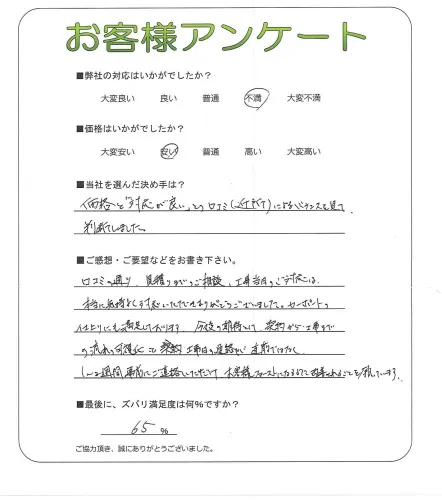 お客様アンケート
■弊社の対応はいかがでしたか?
大変良い 良い 普通 不満 大変不満
■価格はいかがでしたか?
大変安い 安い 普通 高い 大変高い
■当社を選んだ決め手は?
価格と「対応が良い」との口コミ(近所で)によるバランスを見て、
判断しました。
■ご感想・ご要望などをお書き下さい。
口コミの通り、見積りからのご相談、工事当日のご対応は、
本当に気持ちよく対応いただきありがとうございました。カーポートの
仕上りにも満足しております。今後の期待として、契約から工事まで
の流れの可視化と契約工事日の連絡が直前ではなく、
1〜2週間事前にご連絡いただけ
■最後に、ズバリ満足度は何%ですか?
65 %
ご協力頂き、誠にありがとうございました。